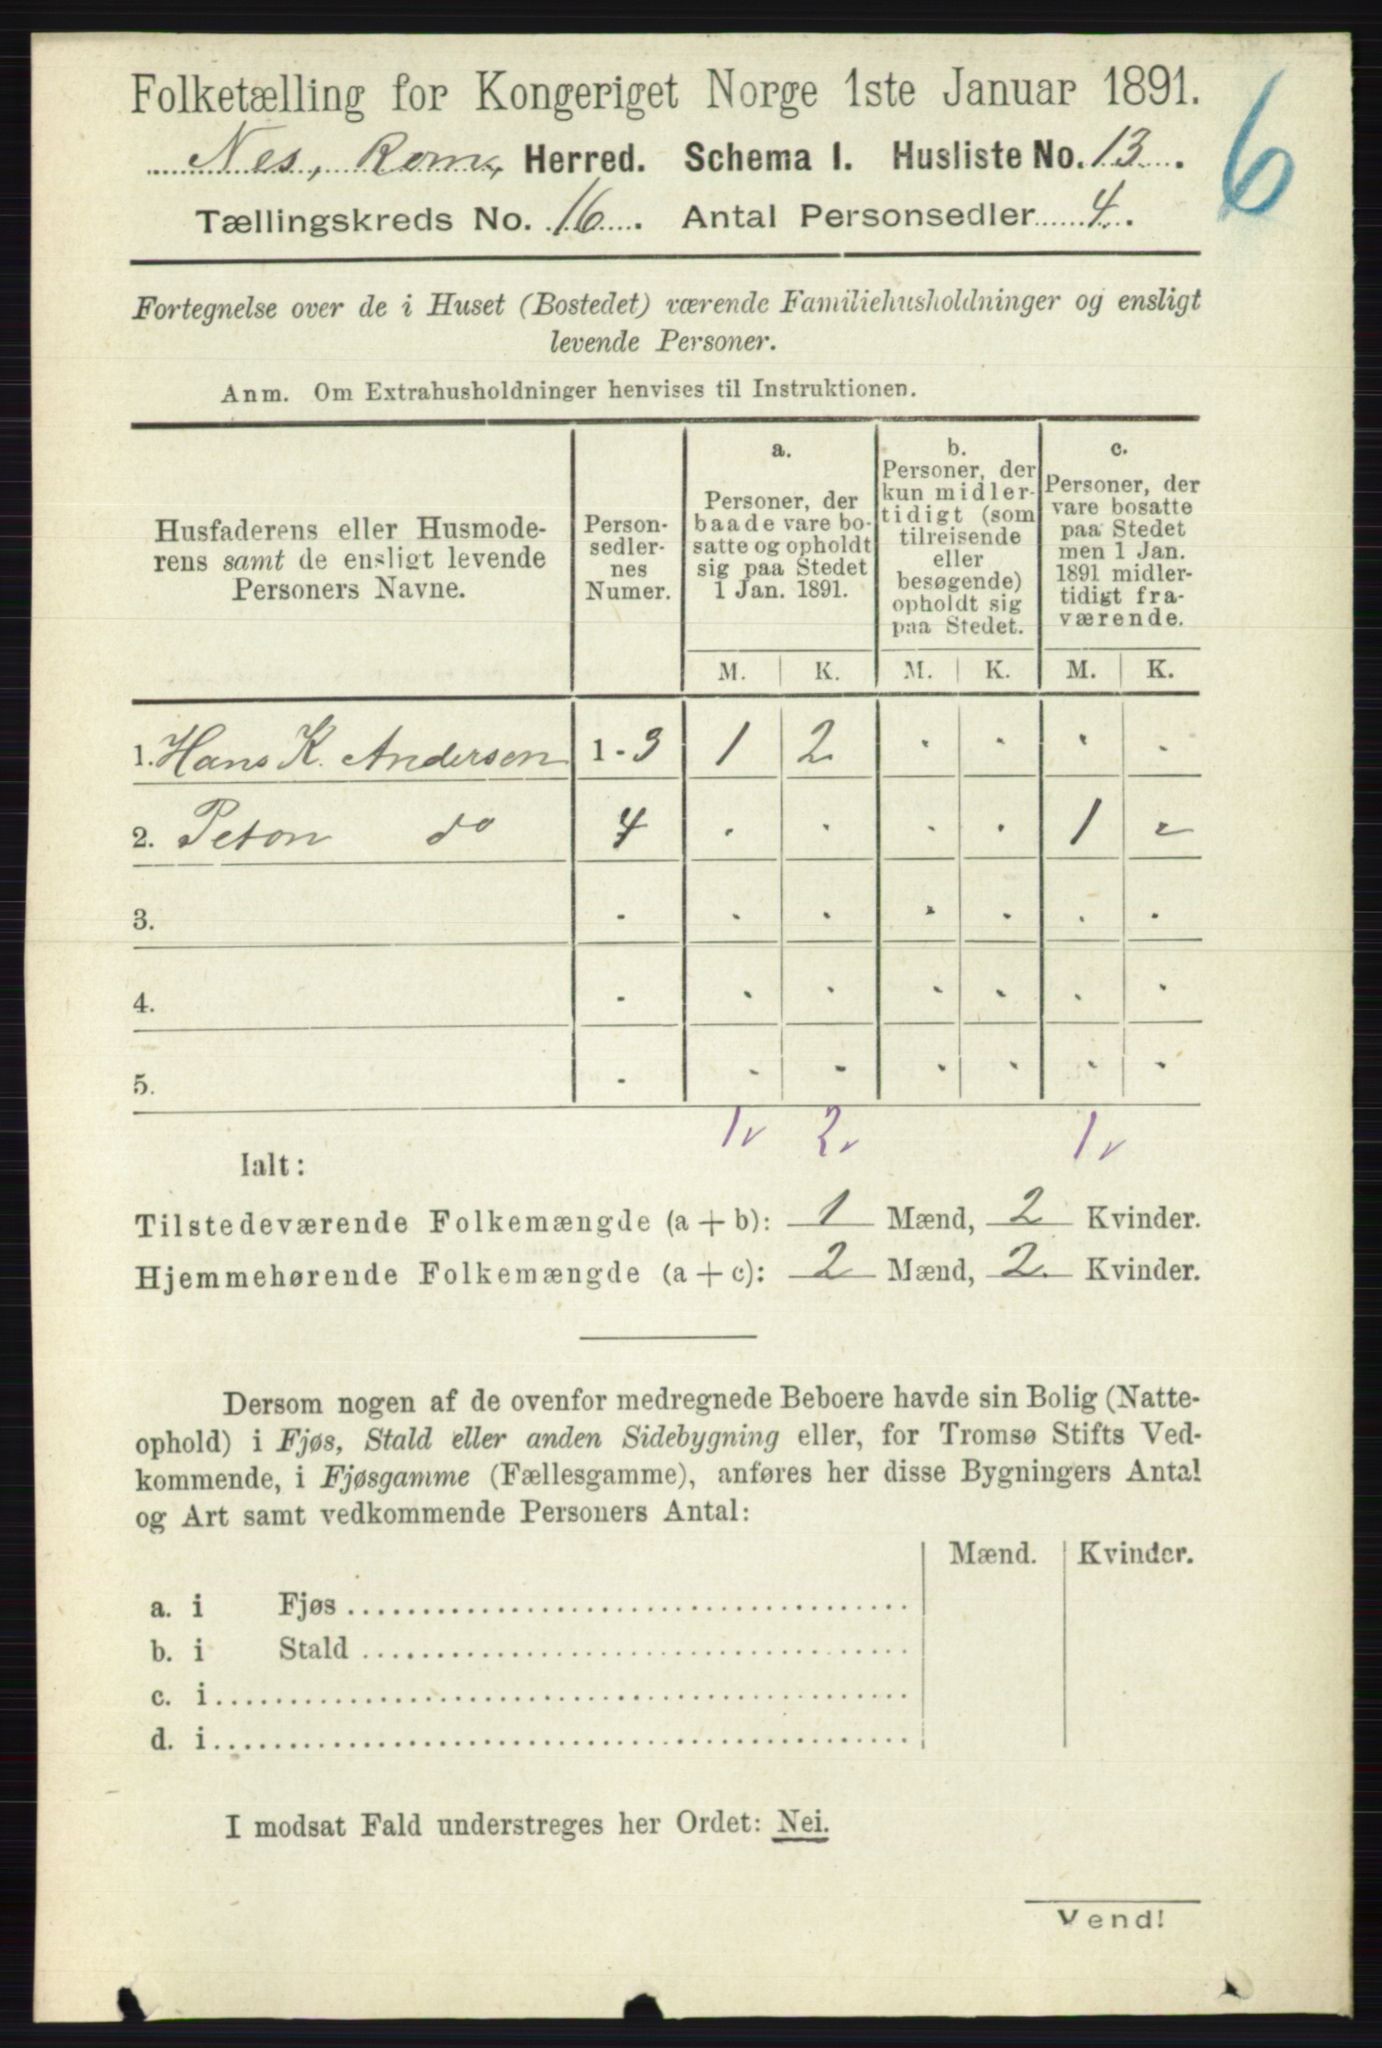 Folketælling for Kongeriget Norge 1ste Januar 1891.
6
Nes, Rom., Herred. Schema I. Husliste No. 13.
Tællingskreds No. 16. Antal Personsedler 4.
Fortegnelse over de i Huset (Bostedet) værende Familiehusholdninger og ensligt
levende Personer.
Anm. Om Extrahusholdninger henvises til Instruktionen.
Husfaderens eller Husmode-
rens samt de ensligt levende
Personers Navne.
Person-
sedler-
nes
Numer.
a.
Personer, der
baade vare bo-
satte og opholdt
sig paa Stedet
1 Jan. 1891.
b.
Personer, der
kun midler-
tidigt (som
tilreisende
eller
besøgende)
opholdt sig
paa Stedet.
c.
Personer, der
vare bosatte
paa Stedet
men 1 Jan.
1891 midler-
tidigt fra-
værende.
M. K. M. K. M. K.
1. Hans K. Andersen 1-3 1 2 . . . .
2. Peton do 4 . . . . 1 -
3. . . . . . . .
4. . . . . . . .
5. . . . . . . .
1v 2v 1v
Ialt:
Tilstedeværende Folkemængde (a + b): 1 Mænd, 2 Kvinder.
Hjemmehørende Folkemængde (a + c): 2 Mænd, 2 Kvinder.
Dersom nogen af de ovenfor medregnede Beboere havde sin Bolig (Natte-
ophold) i Fjøs, Stald eller anden Sidebygning eller, for Tromsø Stifts Ved-
kommende, i Fjøsgamme (Fællesgamme), anføres her disse Bygningers Antal
og Art samt vedkommende Personers Antal:
Mænd. Kvinder.
a. i Fjøs
b. i Stald
c. i
d. i
I modsat Fald understreges her Ordet: Nei.
Vend!